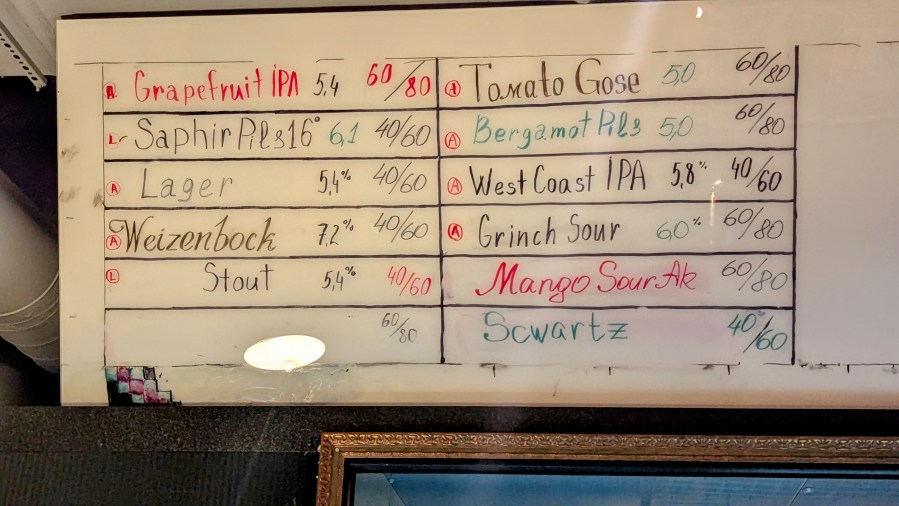 A Grapefruit IPA 5,4 60/80
L Saphir Pils 16° 6,1 40/60
A Lager 5,4% 40/60
A Weizenbock 7,2% 40/60
L Stout 5,4% 40/60
60/80
A Tomato Gose 5,0 60/80
A Bergamot Pils 5,0 60/80
A West Coast IPA 5,8% 40/60
A Grinch Sour 6,0% 60/80
Mango Sour Ale 60/80
Scwartz 40/60